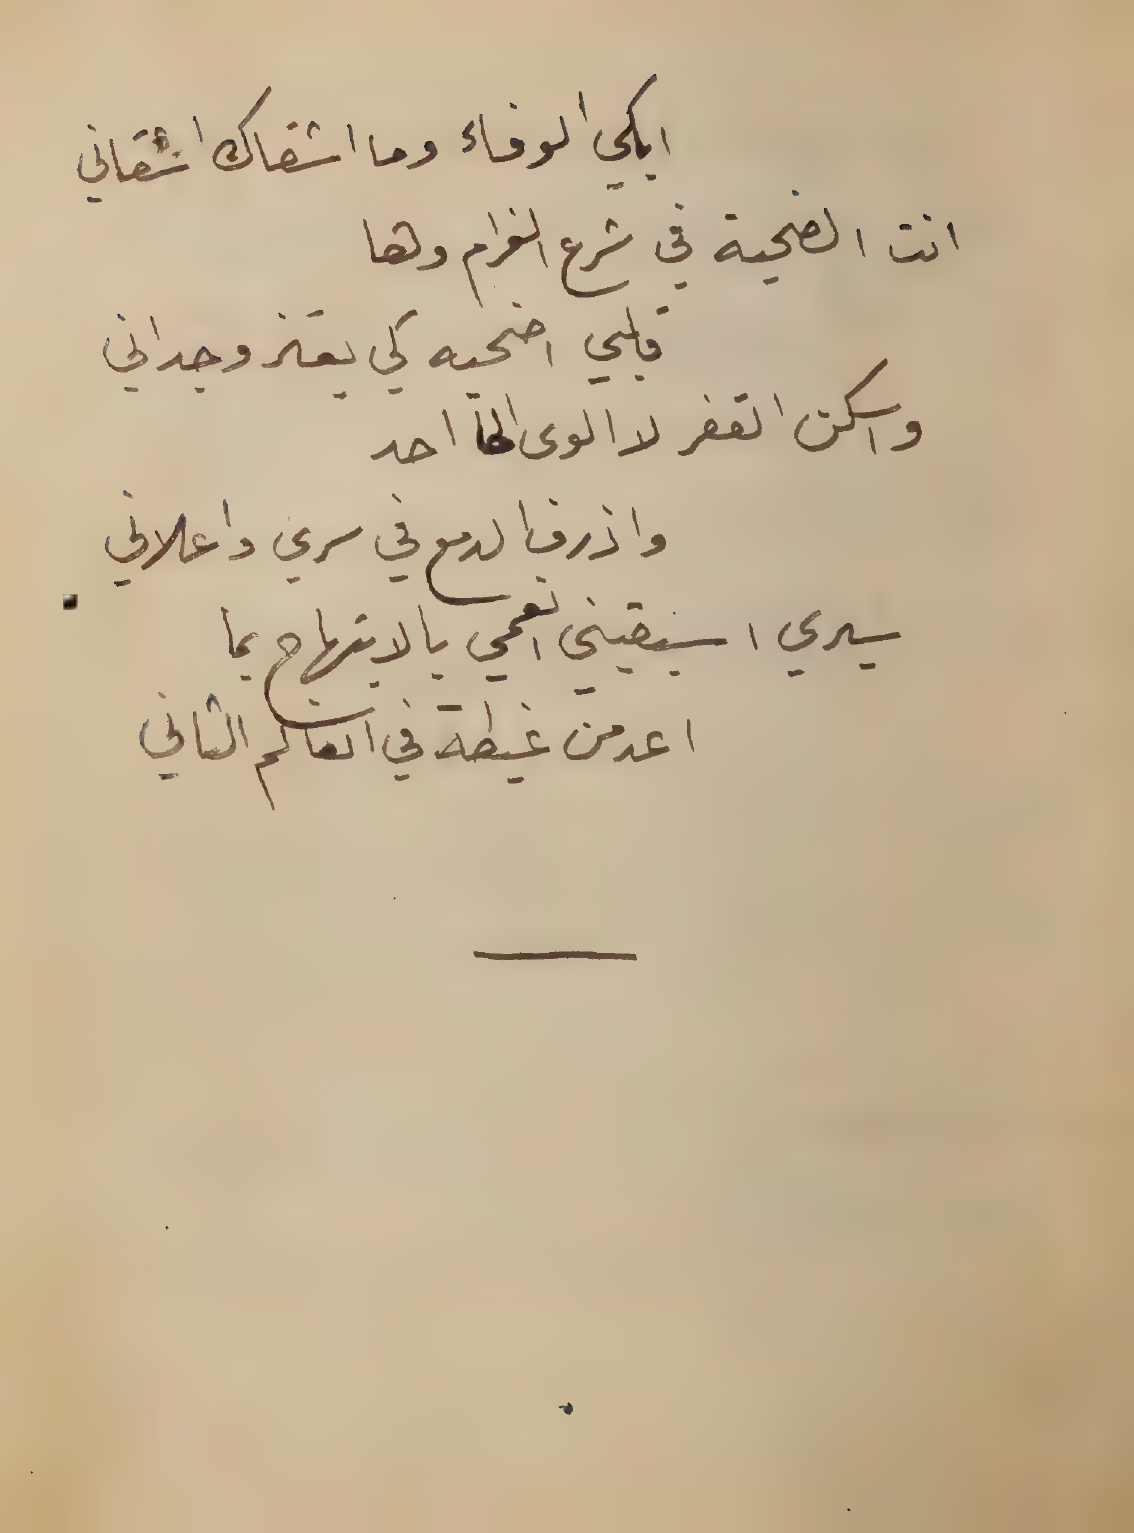 ابكي الوفاء وما اشقاك اشقاني
انت الضحية في شرع الغرام ولها
قلبي اضحيه كي يعتز وجداني
واسكن القفر لا الوى احد
واذرف الدمع في سري واعلاني
سيري اسبقيني انعمي بالابتهاج بما
اعد من غبطة في العالم الثاني